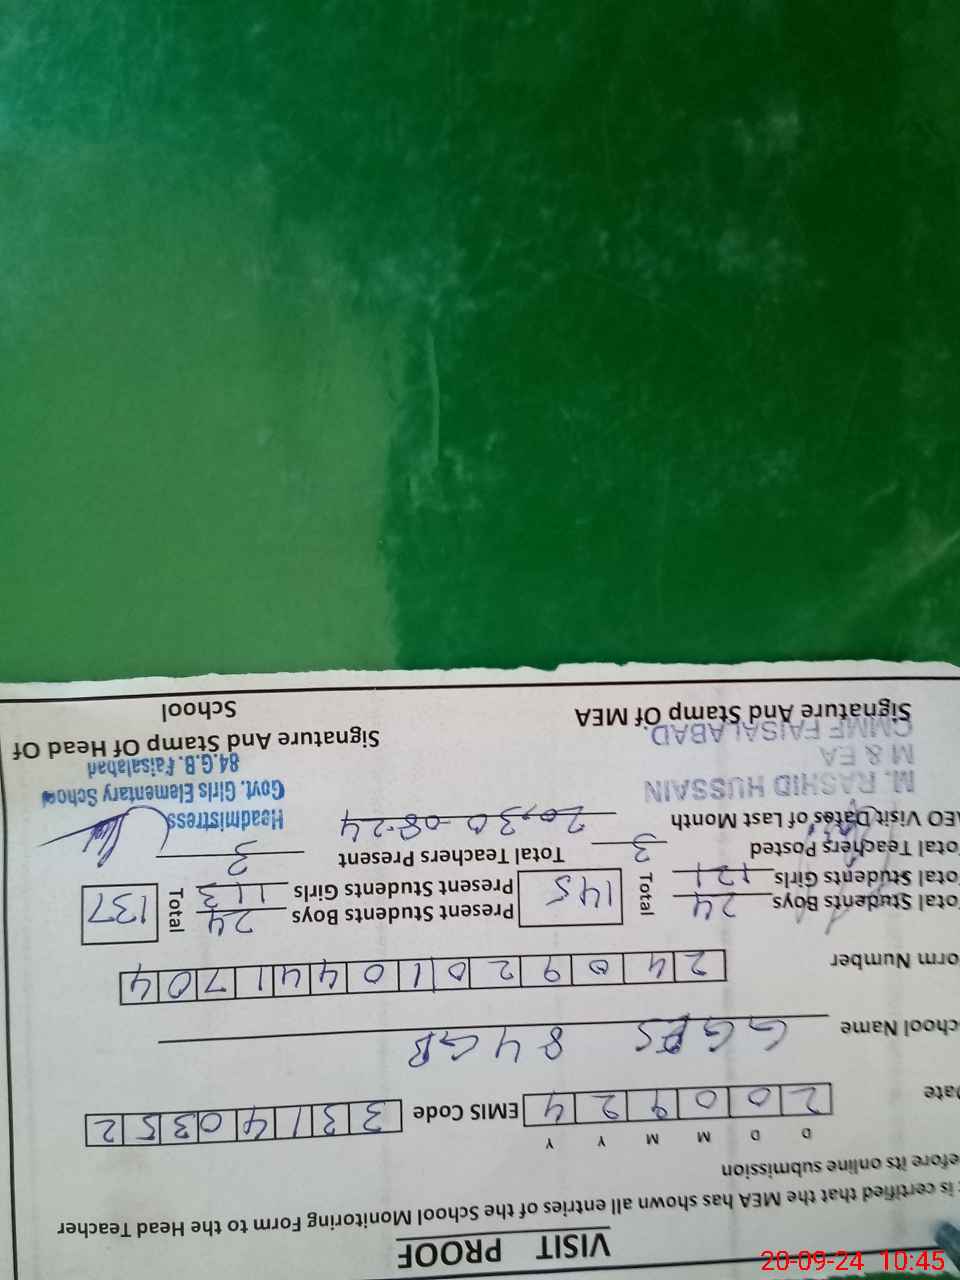 VISIT PROOF
is certified that the MEA has shown all entries of the School Monitoring Form to the Head Teacher
efore its online submission
D D M M Y Y
ate 2 0 0 9 2 4 EMIS Code 3 3 1 4 0 3 5 2
chool Name GGES 84 GB
orm Number 2 4 0 9 2 0 1 0 4 4 1 7 0 4
otal Students Boys 24 Total 145 Present Students Boys 24 Total 137
otal Students Girls 121 Present Students Girls 113
otal Teachers Posted 3 Total Teachers Present 3
AEO Visit Dates of Last Month 20,30-08-24
M. RASHID HUSSAIN
M & EA
CMMF FAISALABAD.
Headmistress
Govt. Girls Elementary School
84.G.B. Faisalabad
Signature And Stamp Of MEA
Signature And Stamp Of Head Of
School
20-09-24 10:45